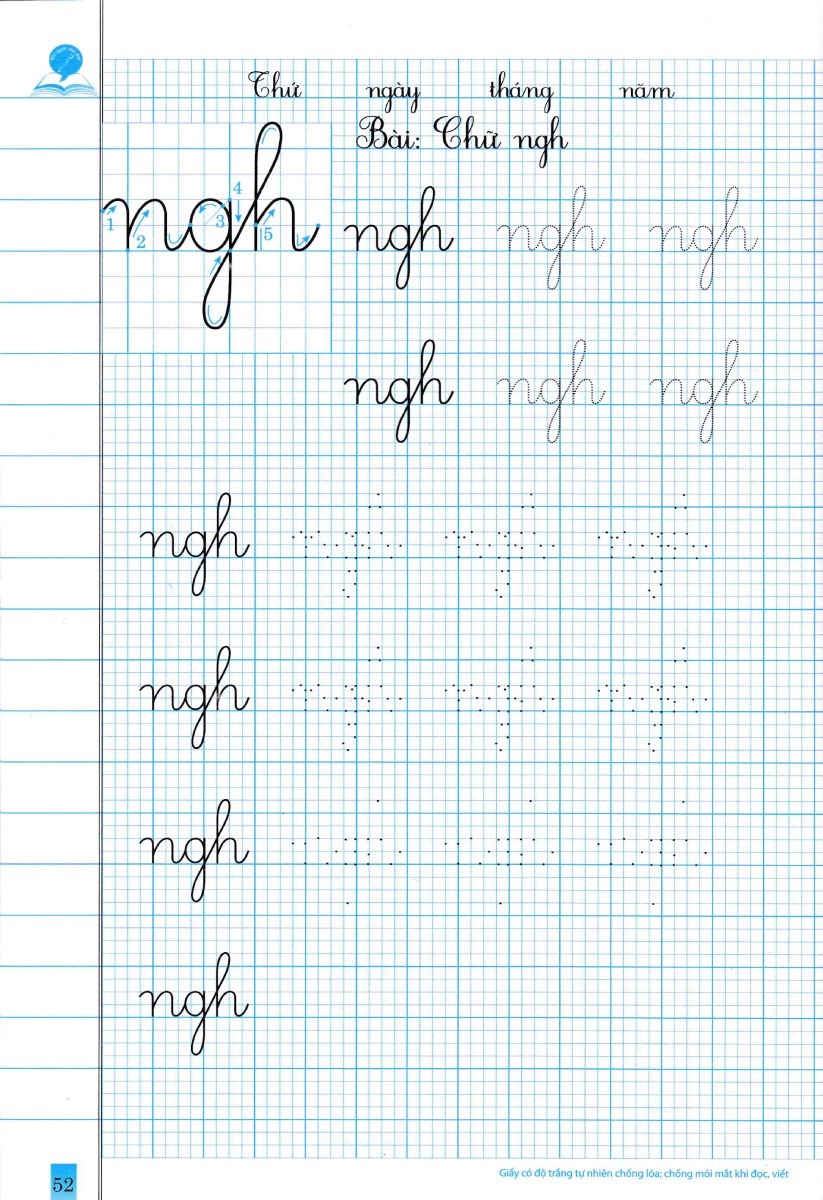 Thứ ngày tháng năm
Bài: Chữ ngh
ngh
1 2 3 4 5
ngh ngh ngh
ngh ngh ngh
ngh
ngh
ngh
ngh
Giấy có độ trắng tự nhiên chống lóa; chống mỏi mắt khi đọc, viết
52